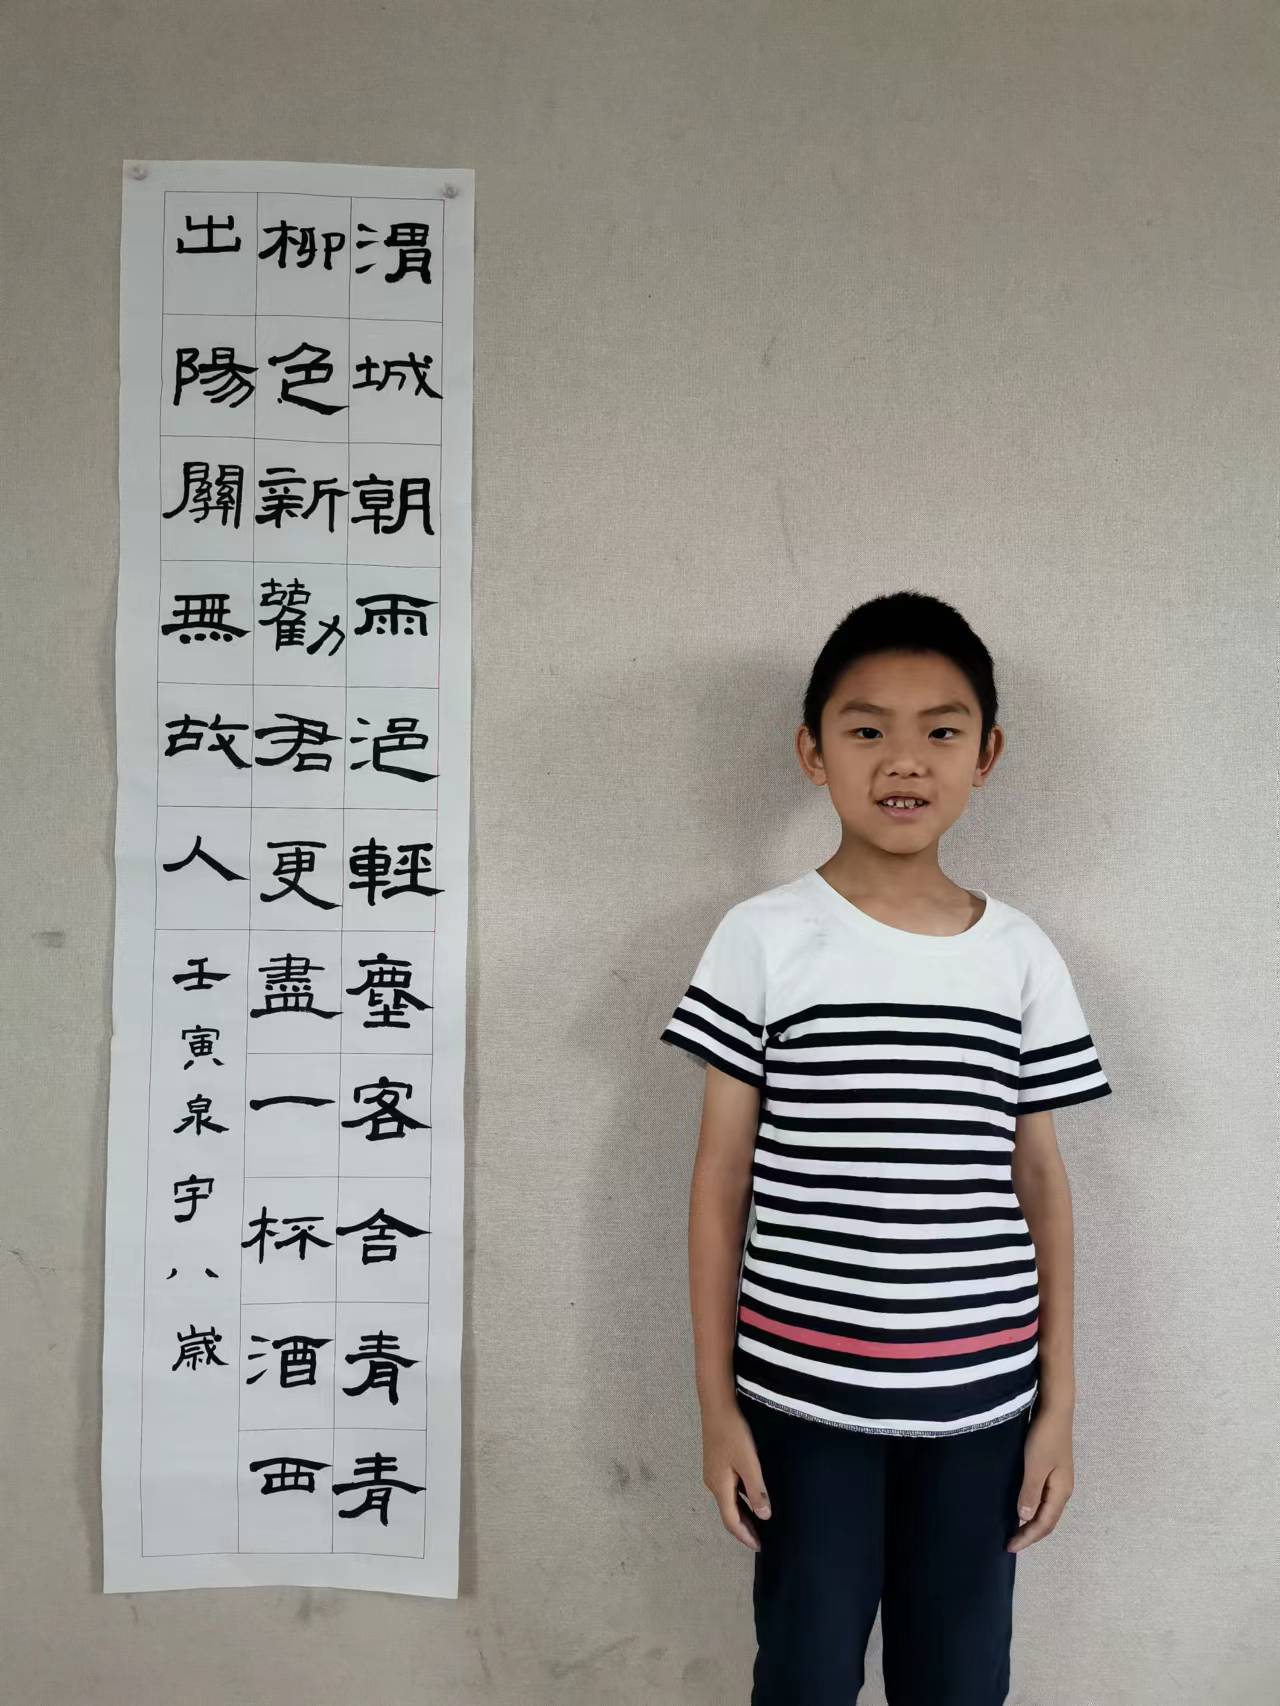 渭城朝雨浥輕塵客舍青青
柳色新勸君更盡一杯酒西
出陽關無故人壬寅泉宇八歲